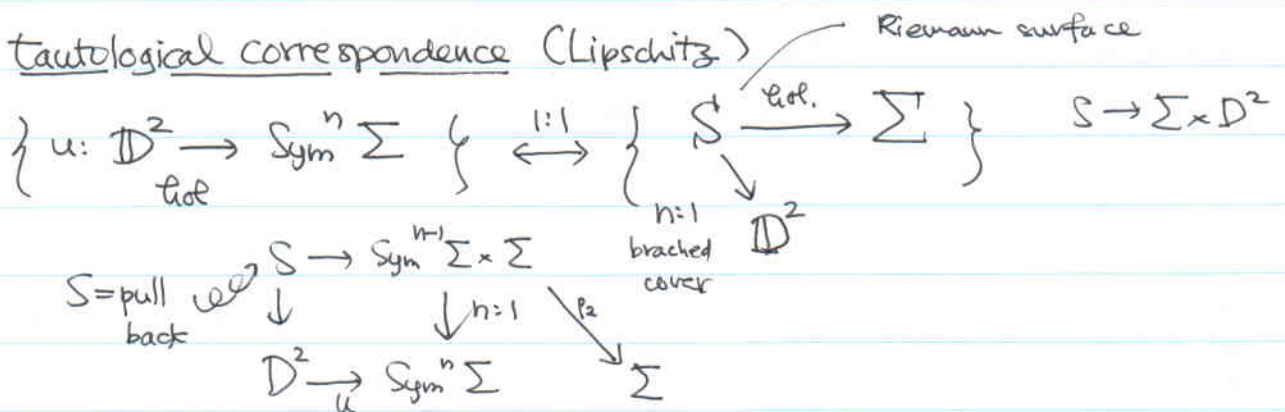 tautological correspondence (Lipschitz)
Riemann surface
{ u: 𝔻² → Symⁿ Σ } ⟷ { S → Σ } S → Σ × D²
hol
1:1
hol.
n:1
brached
cover
𝔻²
S = pull
back
S → Symⁿ⁻¹ Σ × Σ
↓ ↓ n:1 ↘ p₂
D² → Symⁿ Σ Σ
u